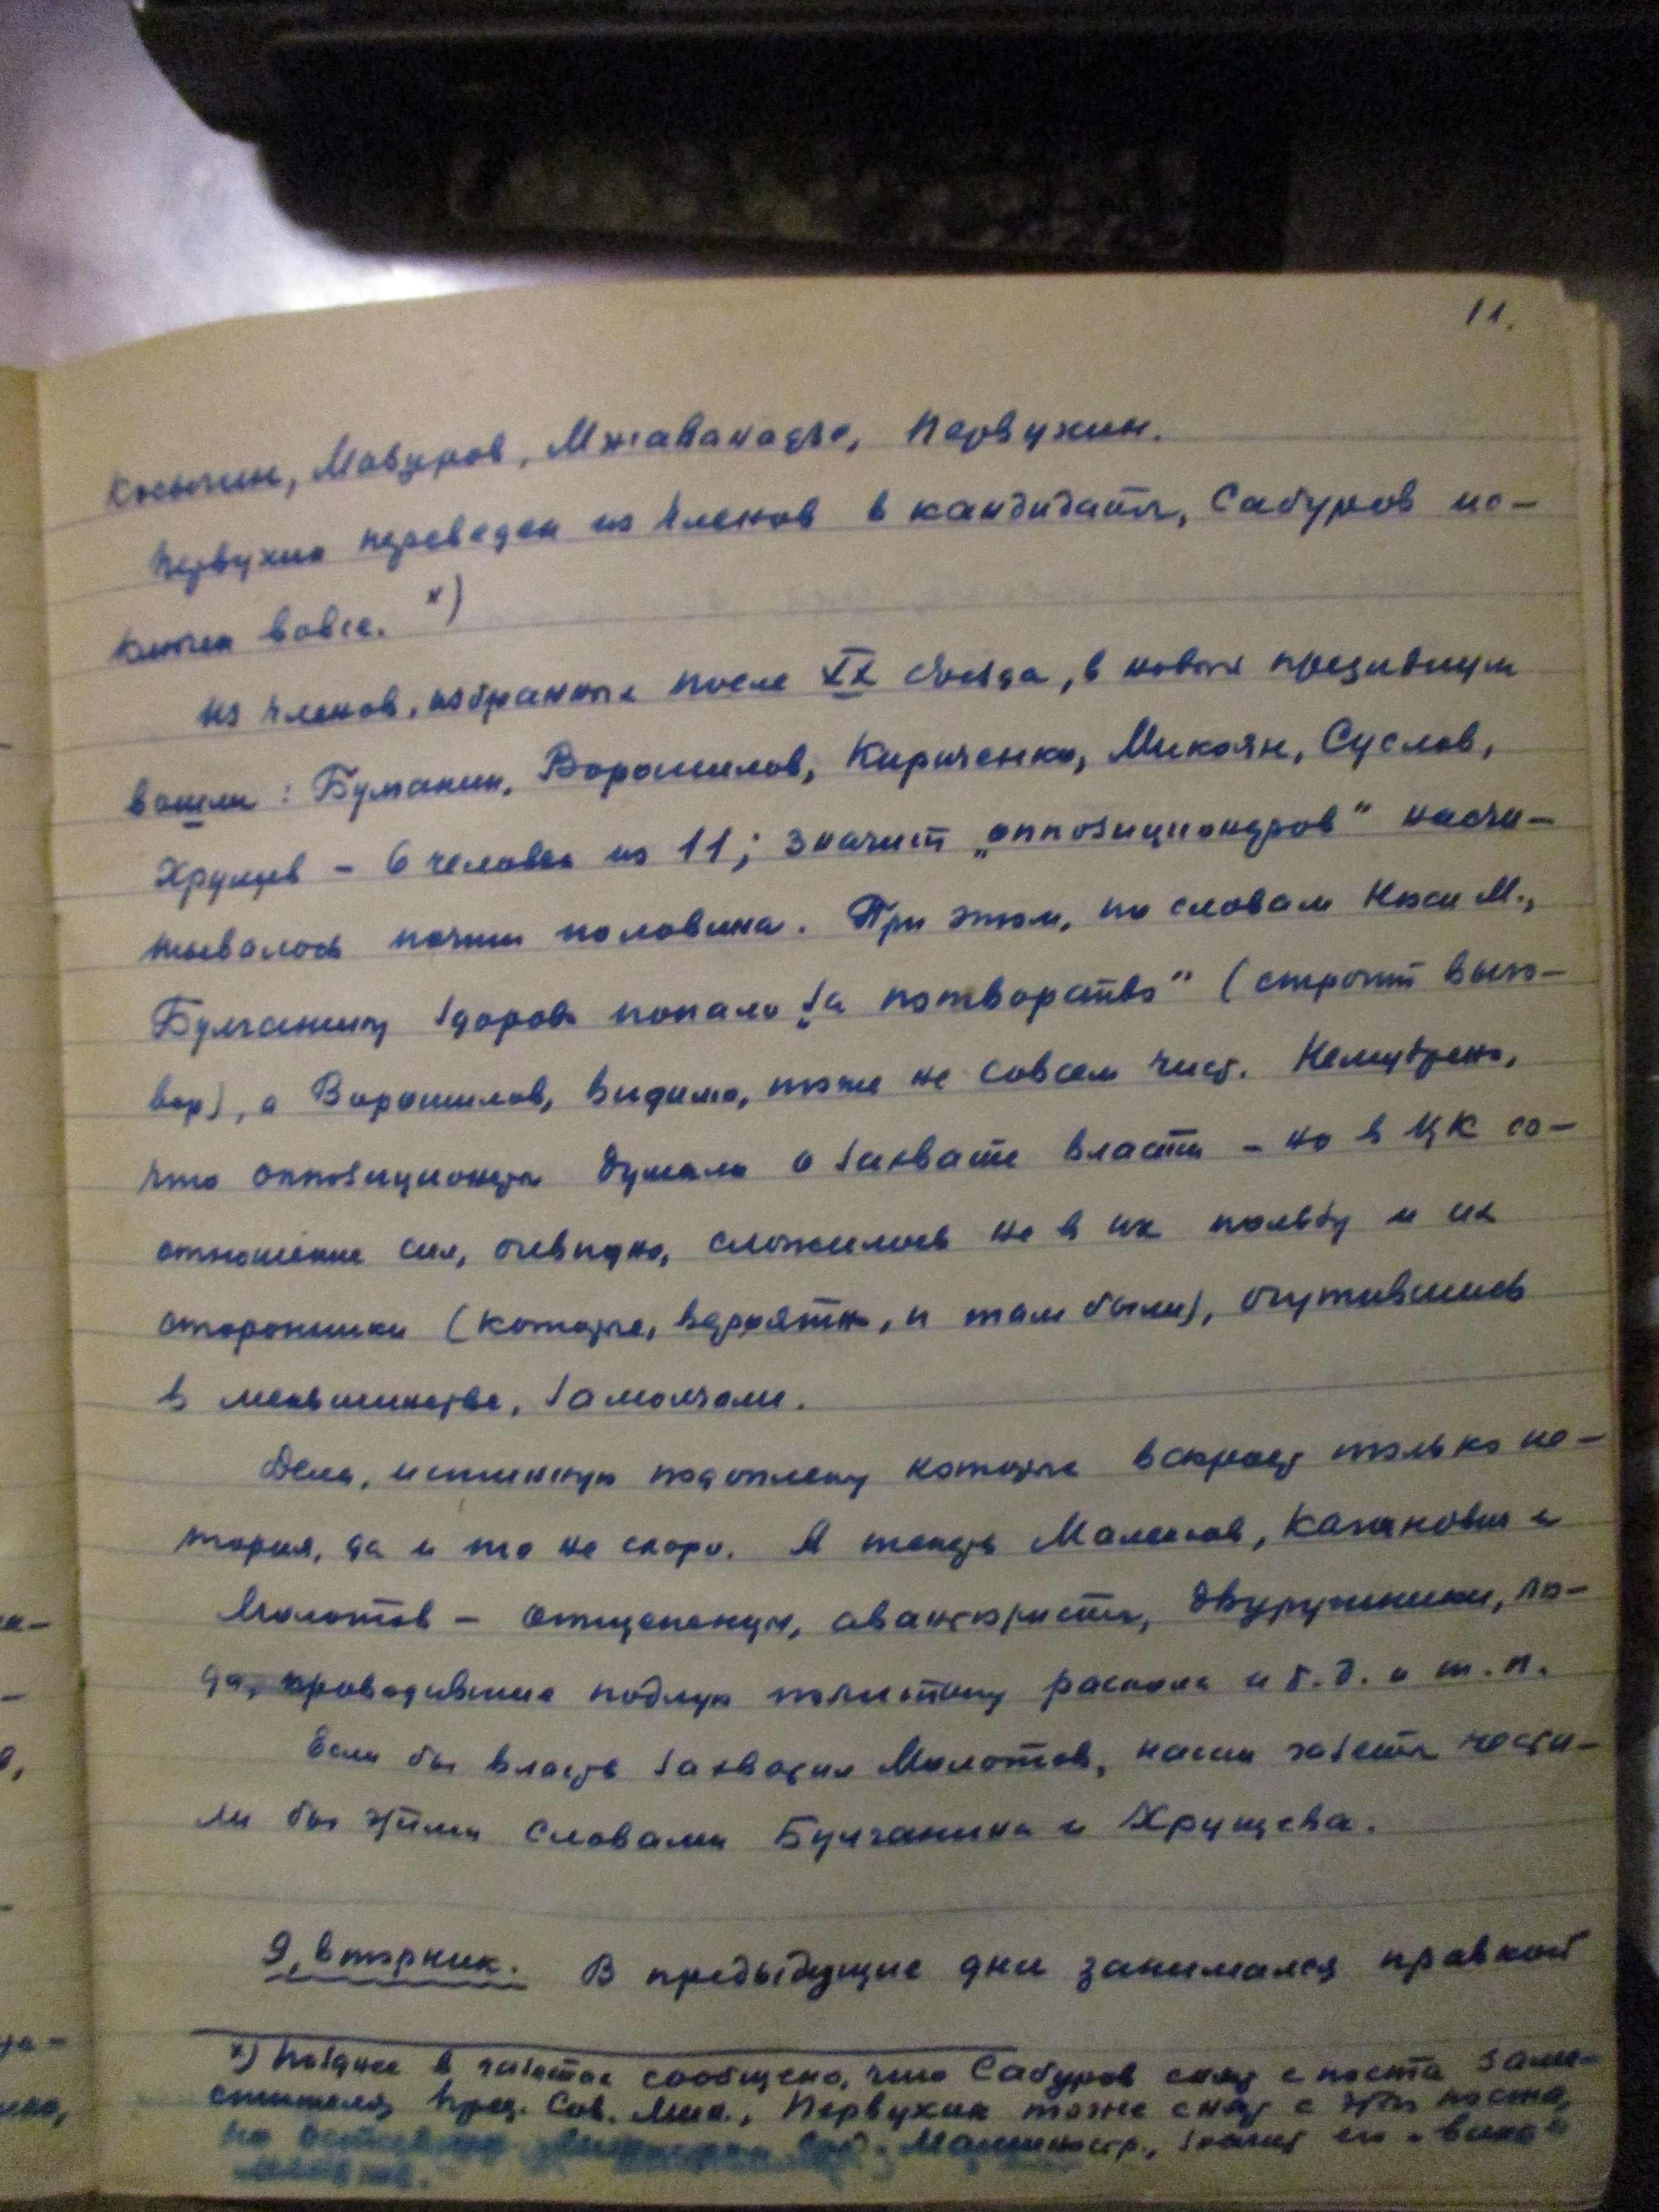 11.
Косыгин, Мазуров, Мжаванадзе, Первухин.
Первухин переведен из членов в кандидаты, Сабуров ис-
ключен вовсе. х)
Из членов, избранных после XX съезда, в новый президиум
вошли: Булганин, Ворошилов, Кириченко, Микоян, Суслов,
Хрущев – 6 человек из 11; значит „оппозиционеров" насчи-
тывалось почти половина. При этом, по словам Нюси М.,
Булганину здорово попало „за потворство" (строгий выго-
вор), а Ворошилов, видимо, тоже не совсем чист. Немудрено,
что оппозиционеры думали о захвате власти – но в ЦК со-
отношение сил, очевидно, сложилось не в их пользу и их
сторонники (которые, вероятно, и там были), очутившись
в меньшинстве, замолчали.
Дела, истинную подоплеку которых вскроет только ис-
тория, да и то не скоро. А теперь Маленков, Каганович и
Молотов – отщепенцы, авантюристы, двурушники, лю-
ди, проводившие подлую политику раскола и т.д. и т.п.
Если бы власть захватил Молотов, наши газеты чести-
ли бы этими словами Булганина и Хрущева.
9, вторник. В предыдущие дни занимался правкой
х) Позднее в газетах сообщено, что Сабуров снят с поста заме-
стителя Пред. Сов. Мин., Первухин тоже снят с этого поста,
но Машиностр., значит его „вина"